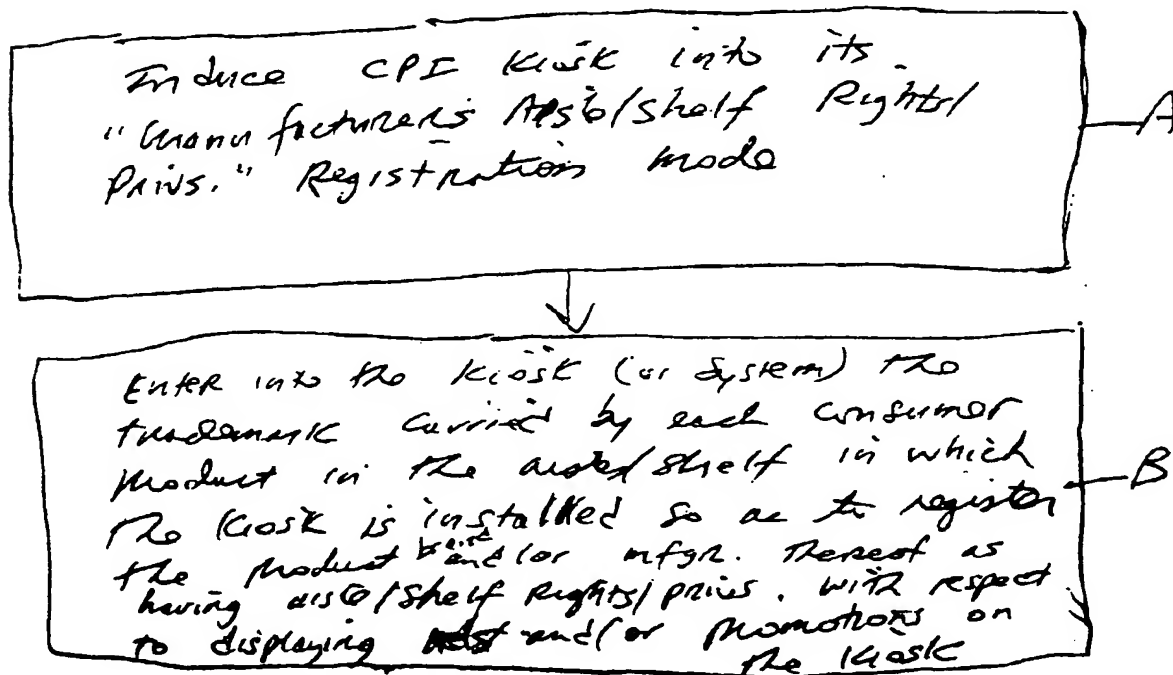 Induce CPI Kiosk into its
"Manufacturer's Aisle/Shelf Rights/
Privs." Registration mode
A
Enter into the Kiosk (or System) the
trademark carried by each consumer
product in the aisle/shelf in which
the Kiosk is installed so as to register
B
the product brand and/or mfgr. thereof as
having aisle/shelf Rights/privs. with respect
to displaying and/or promotions on
the Kiosk